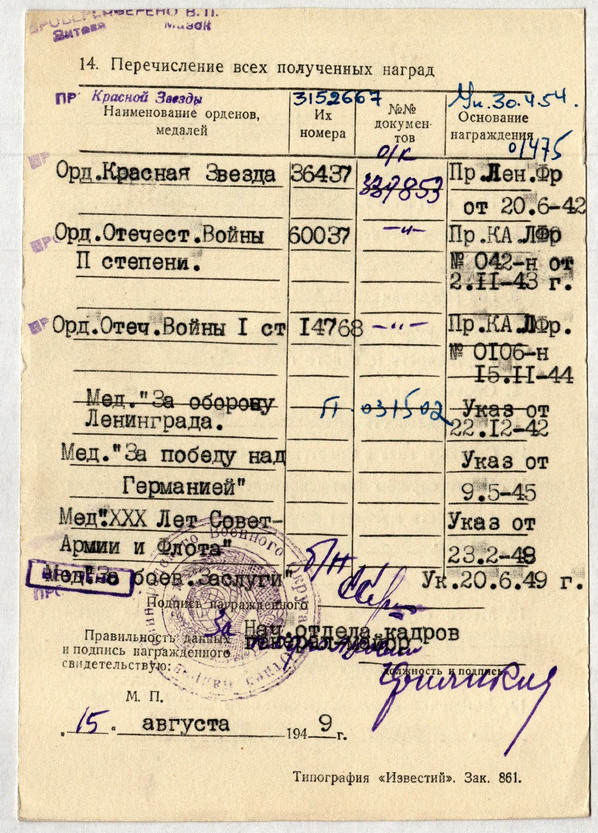 14. Перечисление всех полученных наград
Красной Звезды 3152667 Ук. 30.4.54.
Наименование орденов, медалей
Их номера
№№ докумен-тов
Основание награждения
01475
о/к
Орд.Красная Звезда 36437 Пр.Лен.Фр
от 20.6-42
Орд.Отечест.Войны 60037 -"- Пр.КА.ЛФр
П степени. № 042-н от
2.II-43 г.
Орд.Отеч.Войны I ст I4768 -"- Пр.КА.ЛФр.
№ 0I06-н
I5.II-44
Мед."За оборону П 031502 Указ от
Ленинграда. 22.I2-42
Мед."За победу над Указ от
Германией" 9.5-45
Мед"XXX Лет Совет- Указ от
Армии и Флота" б/н 23.2-48
Мед."За боев.Заслуги" Ук.20.6.49 г.
Подпись награжденного
Правильность данных За Нач.отдела кадров
и подпись награжденного генерал-майор
свидетельствую: должность и подпись
М. П.
„15" августа 1949 г.
Типография «Известий». Зак. 861.